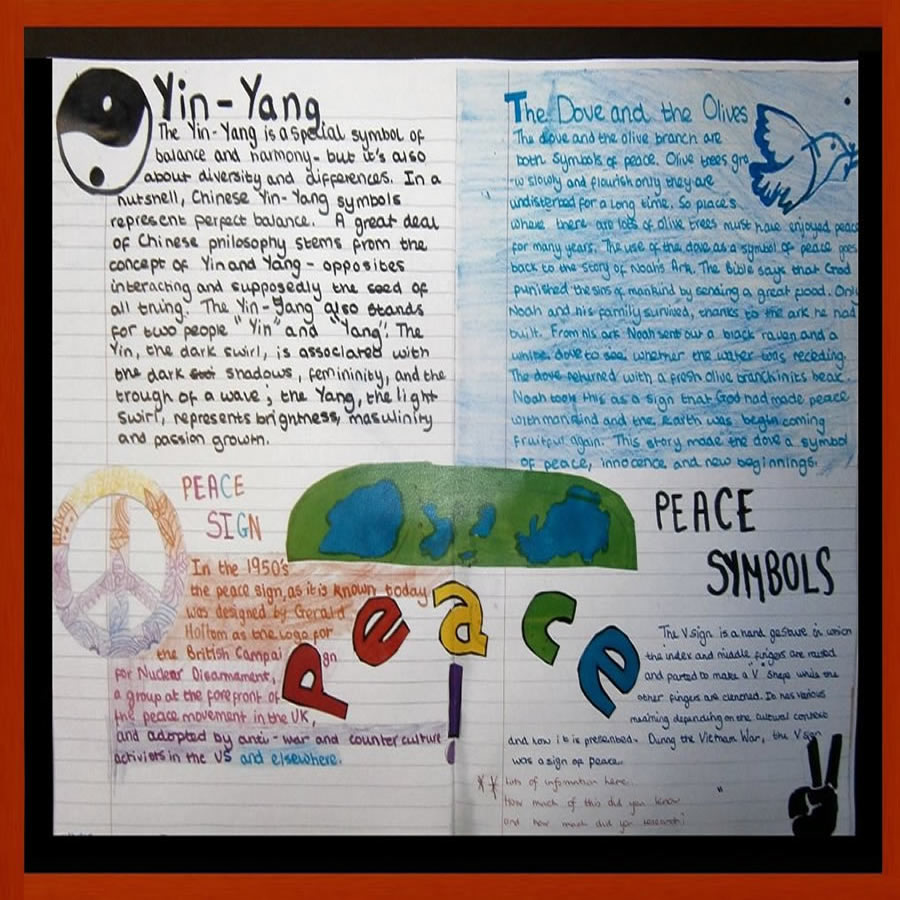 Yin-Yang
The Yin-Yang is a special symbol of
balance and harmony - but it's also
about diversity and differences. In a
nutshell, Chinese Yin-Yang symbols
represent perfect balance. A great deal
of Chinese philosophy stems from the
concept of Yin and Yang - opposites
interacting and supposedly the seed of
all thing. The Yin-Yang also stands
for two people "Yin" and "Yang". The
Yin, the dark swirl, is associated with
the dark shadows, femininity, and the
trough of a wave; the Yang, the light
swirl, represents brightness, masulinity
and passion growth.
The Dove and the Olives
The dove and the olive branch are
both symbols of peace. Olive trees gro
w slowly and flourish only they are
undisterbed for a long time. So places
where there are lots of olive trees must have enjoyed peace
for many years. The use of the dove as a symbol of peace goes
back to the story of Noah's Ark. The Bible says that God
punished the sins of mankind by sending a great flood. Only
Noah and his family survived, thanks to the ark he had
built. From his ark Noah sent out a black raven and a
white dove to see whether the water was receding.
The dove returned with a fresh olive branch in its beak
Noah took this as a sign that God had made peace
with mankind and the Earth was begin coming
fruitful again. This story made the dove a symbol
of peace, innocence and new beginnings.
PEACE
SIGN
In the 1950's
the peace sign, as it is known today
was designed by Gerald
Holtom as the logo for
the British Campai gn
for Nuclear Disarmament,
a group at the forefront of
the peace movement in the UK,
and adopted by anti-war and counter culture
activists in the US and elsewhere.
Peace!
PEACE
SYMBOLS
The V sign is a hand gesture in which
the index and middle fingers are raised
and parted to make a "V" shape while the
other fingers are clenched. It has various
meaning depending on the cultural context
and how it is presented. During the Vietnam War, the V sign
was a sign of peace.
** Lots of information here..
How much of this did you know
and how much did you research?